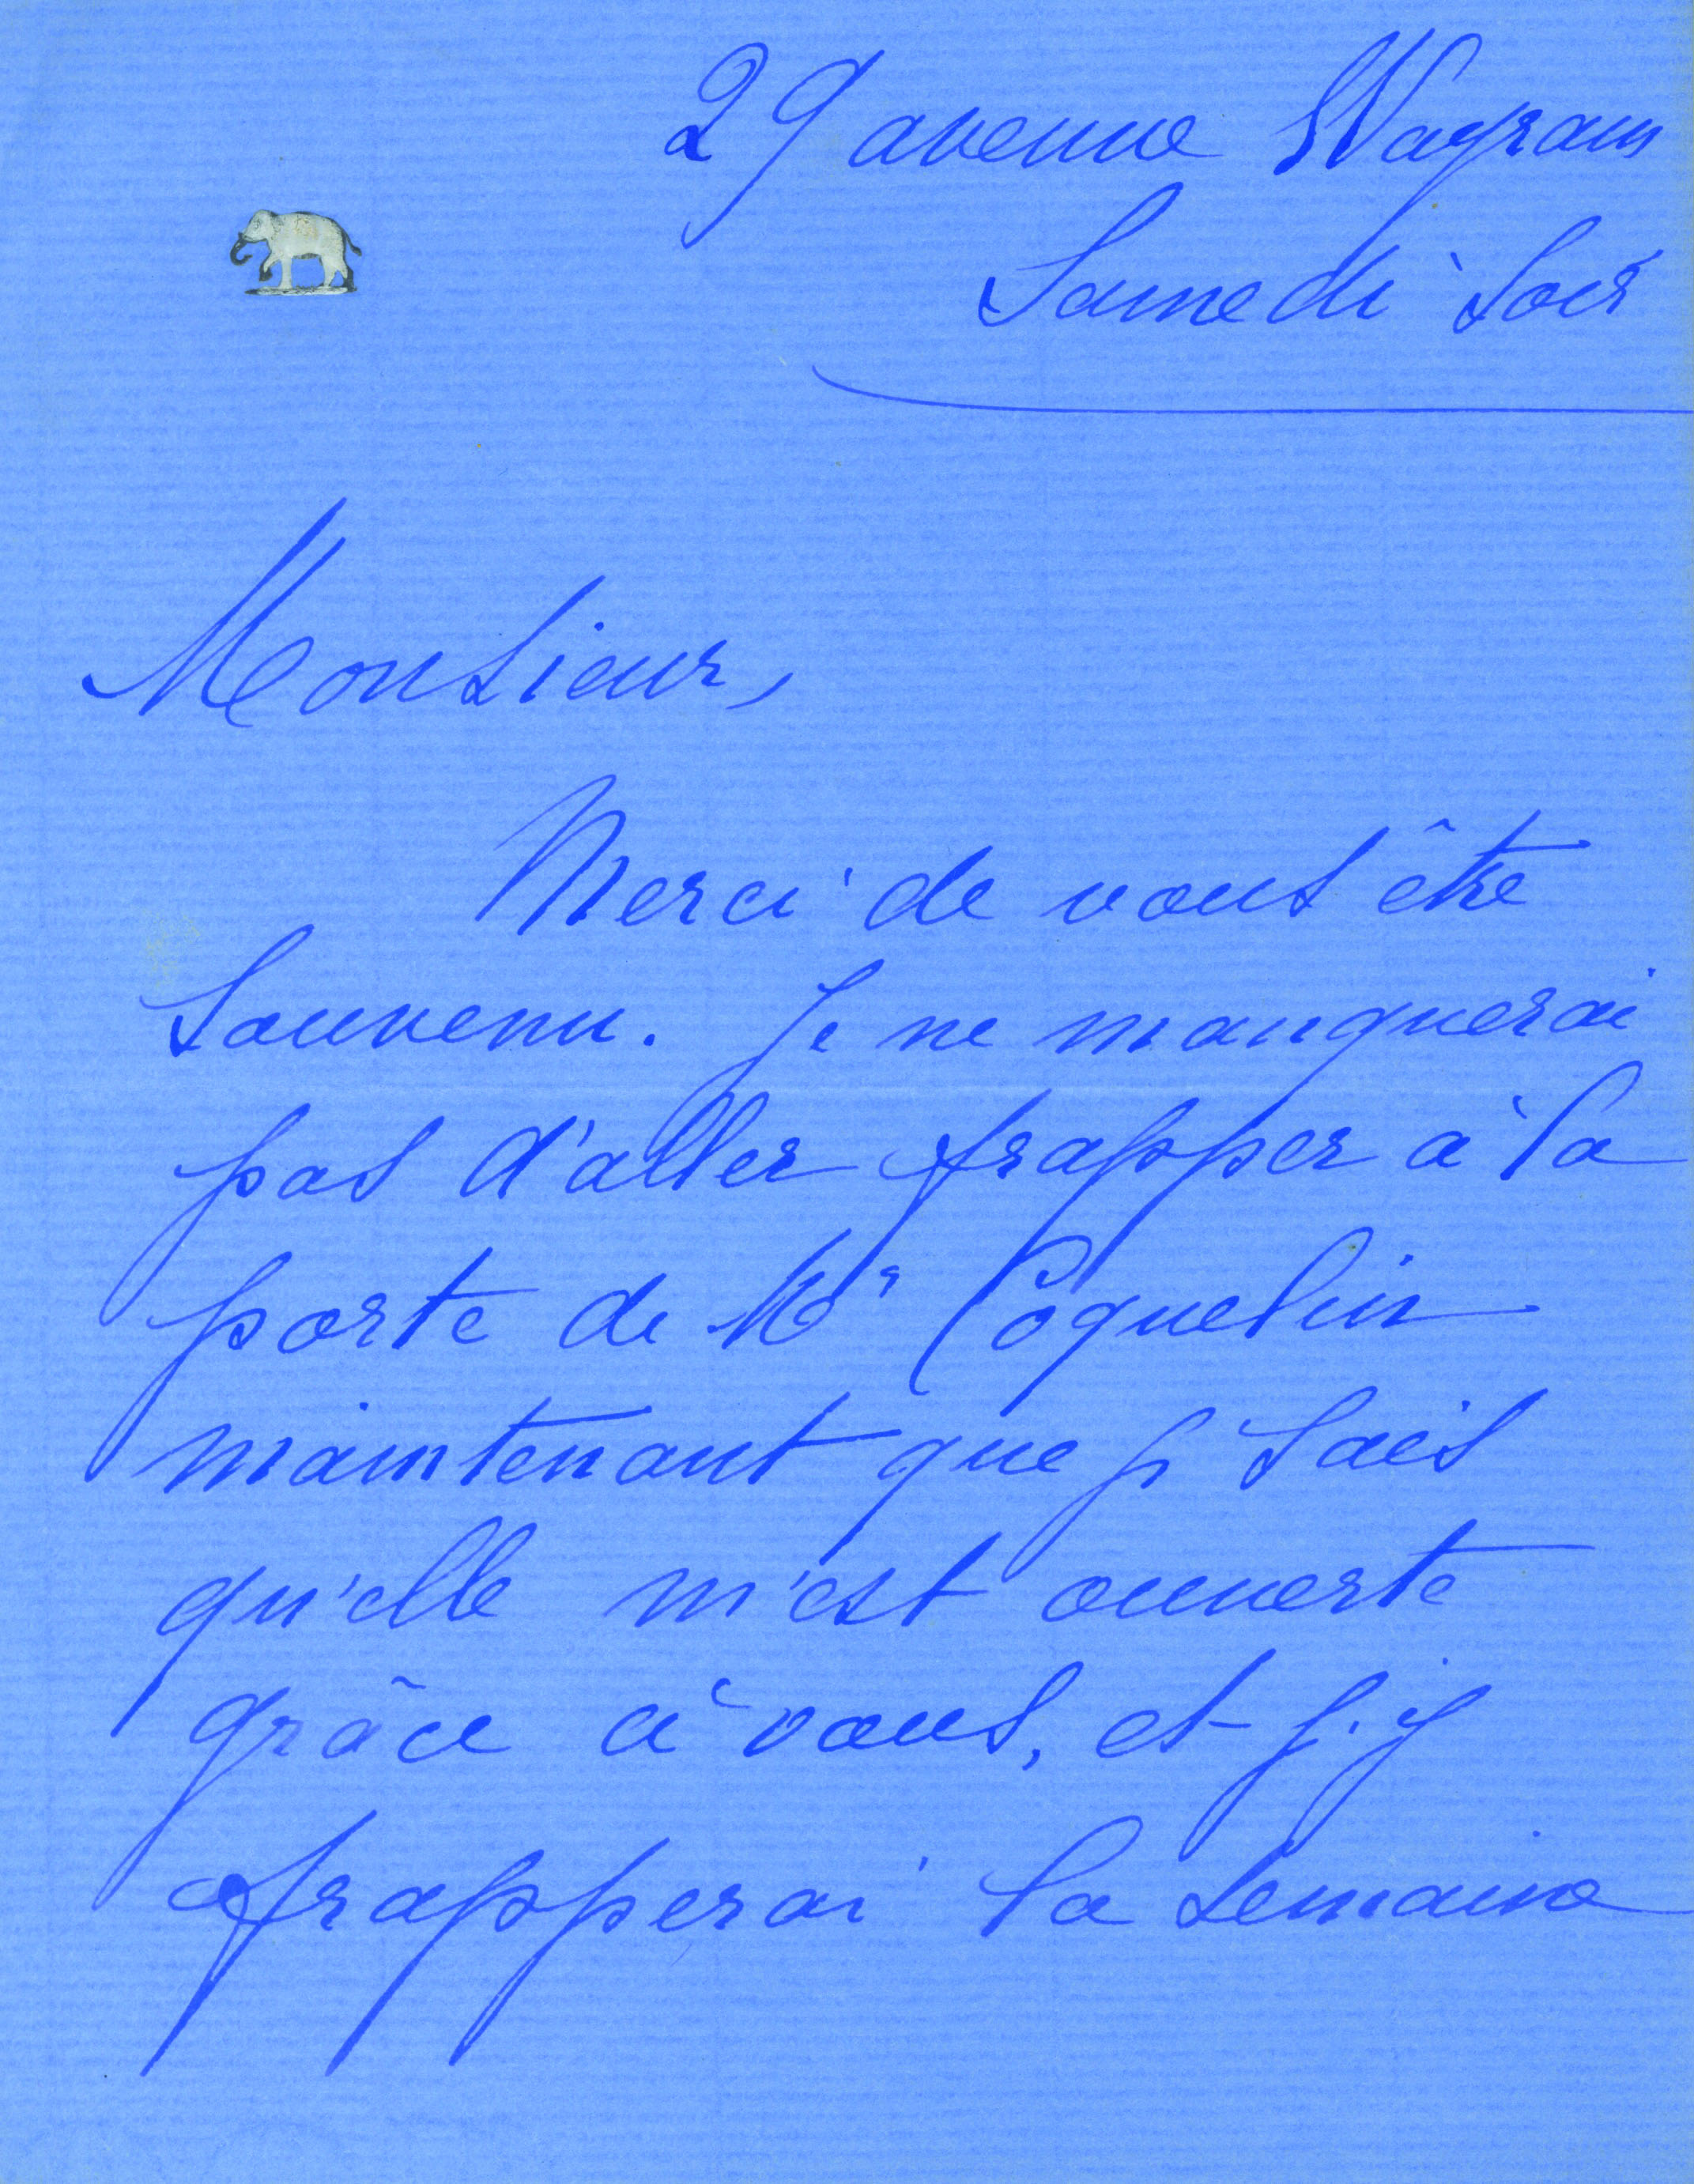 29 avenue Wagram
Samedi soir
Monsieur,
Merci de vous être
souvenu. Je ne manquerai
pas d'aller frapper à la
porte de Mr Coquelin
maintenant que je sais
qu'elle m'est ouverte
grâce à vous, et j'y
frapperai la semaine